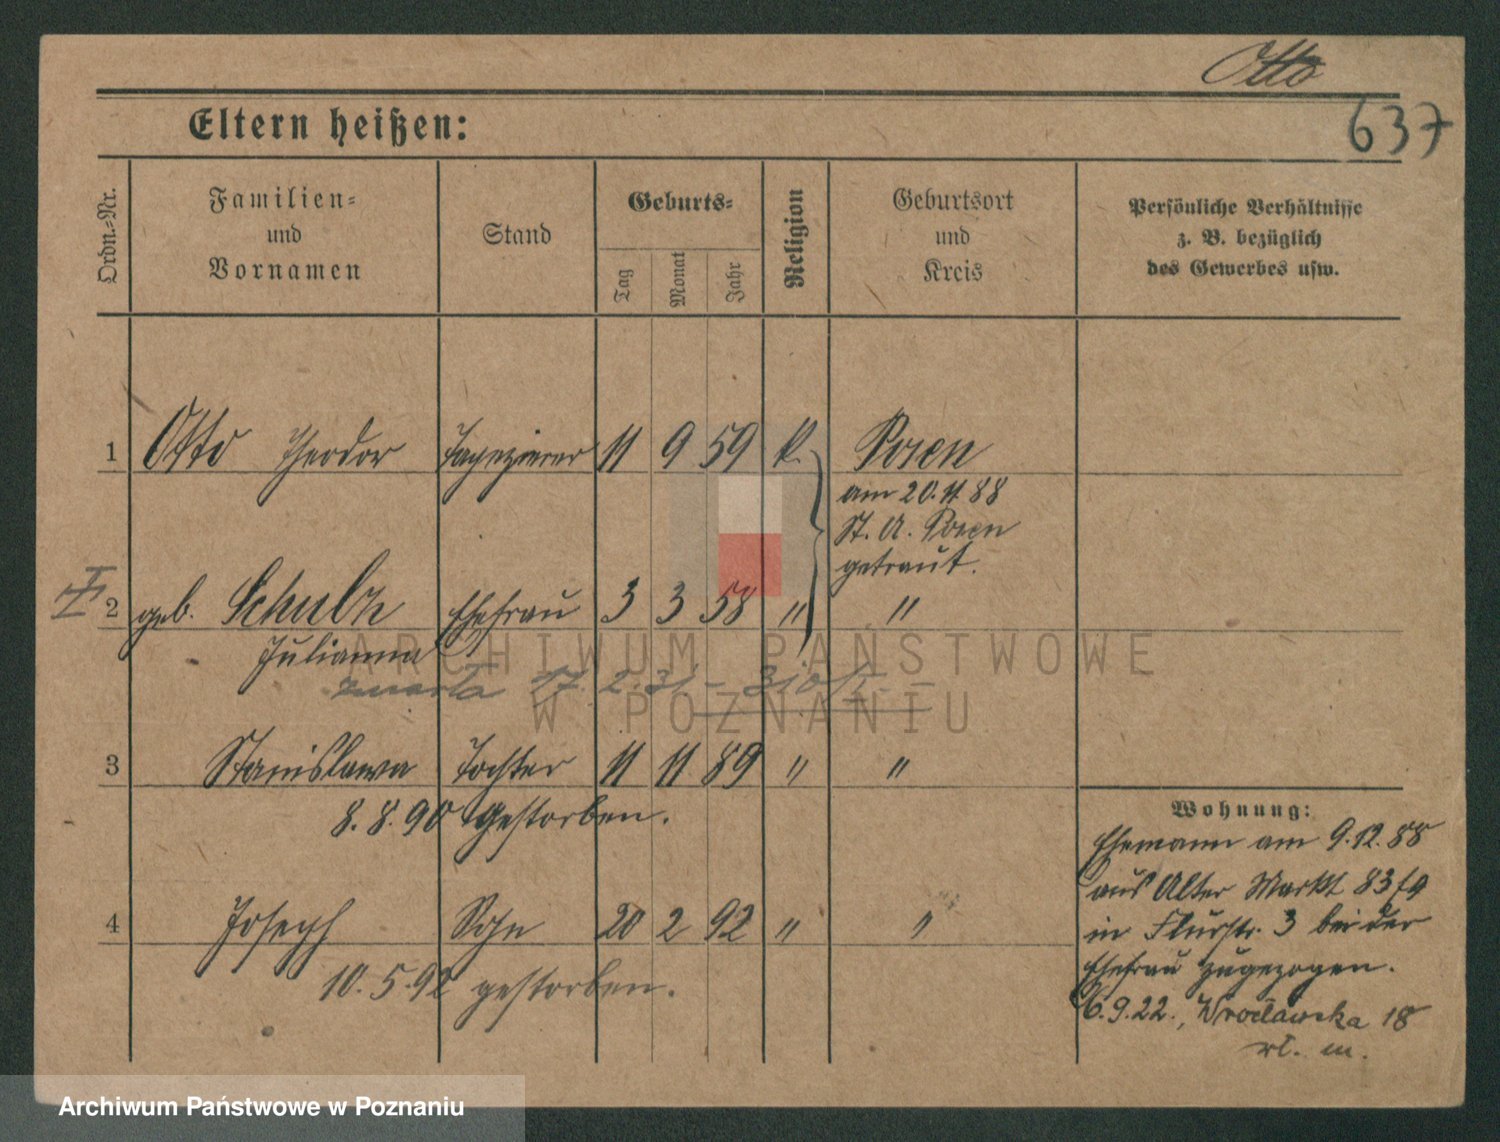 Otto
637
Eltern heißen:
Ordn.-Nr.
Familien-
und
Vornamen
Stand
Geburts-
Tag
Monat
Jahr
Religion
Geburtsort
und
Kreis
Persönliche Verhältnisse
z. B. bezüglich
des Gewerbes usw.
1 Otto Theodor Tapezierer 11 9 59 k. Posen
am 20.11 88
St. A. Posen
getraut.
2 geb. Schulz Ehefrau 3 3 58 " "
Julianna
zmarła 17. 2. 31 –
3 Stanislawa Tochter 11 11 89 " "
8. 8. 90 gestorben.
4 Joseph Sohn 20 2 92 " "
10. 5. 92 gestorben.
Wohnung:
Ehemann am 9.12.88
aus Alter Markt 83
in Flurstr. 3 bei der
Ehefrau zugezogen.
6.9.22., Wrocławska 18
wł. m.
ARCHIWUM PAŃSTWOWE
W POZNANIU
Archiwum Państwowe w Poznaniu